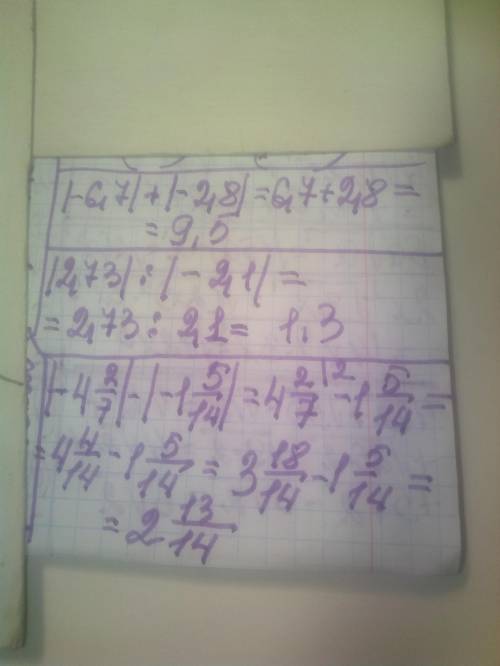 |-6,7|+|-2,8|=6,7+2,8=
=9,5
|2,73|:|-2,1|=
=2,73:2,1=1,3
|-4 2/7|-|-1 5/14|=4 2/7 |2 -1 5/14=
=4 4/14-1 5/14=3 18/14-1 5/14=
=2 13/14